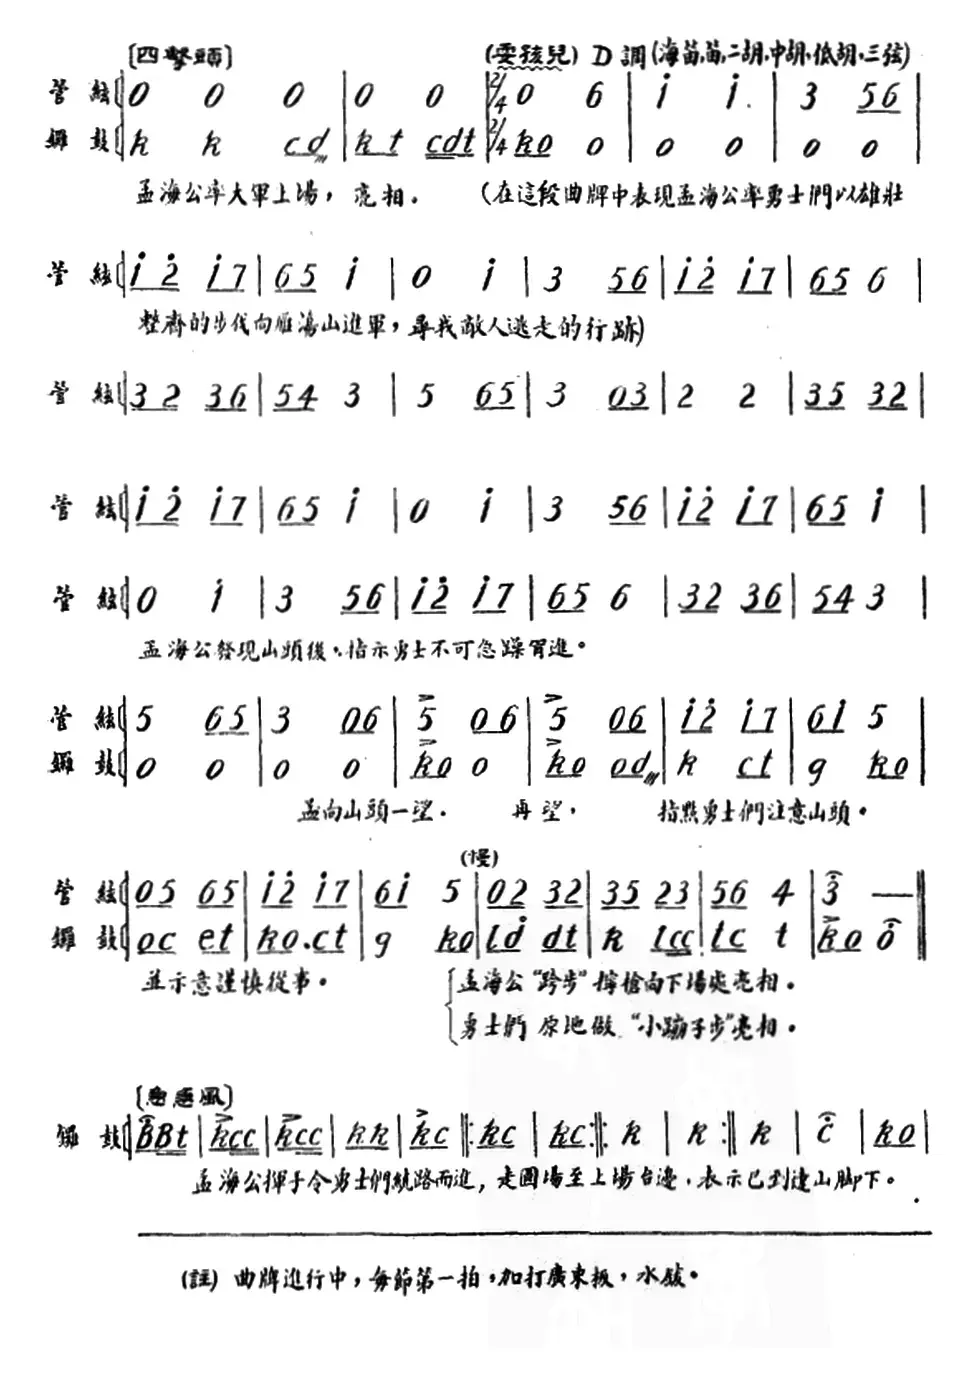 〔四擊頭〕 (耍孩兒) D 調 (海笛,笛,二胡,中胡,低胡,三弦)
管 絃 0 0 0 | 0 0 | 2/4 0 6 | i i. | 3 56 |
鑼 鼓 k k cd | kt cdt | 2/4 ko 0 | 0 0 | 0 0 |
孟海公率大軍上場, 亮相. (在這段曲牌中表現孟海公率勇士們以雄壯
管 絃 i̇2̇ i̇7 | 65 i̇ | 0 i̇ | 3 56 | i̇2̇ i̇7 | 65 6 |
整齊的步伐向雁鴻山進軍,尋找敵人逃走的行跡)
管 絃 32 36 | 54 3 | 5 65 | 3 03 | 2 2 | 35 32 |
管 絃 i̇2̇ i̇7 | 65 i̇ | 0 i̇ | 3 56 | i̇2̇ i̇7 | 65 i̇ |
管 絃 0 i̇ | 3 56 | i̇2̇ i̇7 | 65 6 | 32 36 | 54 3 |
孟海公發現山頭後,指示勇士不可急躁冒進。
管 絃 5 65 | 3 06 | >5 06 | >5 06 | i̇2̇ i̇7 | 6i̇ 5 |
鑼 鼓 0 0 | 0 0 | >ko 0 | >ko od | k ct | g ko |
孟向山頭一望. 再望, 指點勇士們注意山頭。
(慢)
管 絃 05 65 | i̇2̇ i̇7 | 6i̇ 5 | 02 32 | 35 23 | 56 4 | 3 — ‖
鑼 鼓 oc et | ko.ct | g ko | ld dt | k lcc | lc t | >ko 0 ‖
並示意謹慎從事。 孟海公“跨步”擰槍向下場處亮相。
勇士們 原地做 “小蹦子步”亮相。
鑼 鼓 BBt | >kcc | >kcc | kk | >kc ‖: kc | kc :‖: k | k :‖ k | c | ko |
孟海公揮手令勇士們繞路而進, 走圓場至上場台邊,表示已到達山脚下。
(註) 曲牌進行中,每節第一拍,加打廣東板,水鈸。